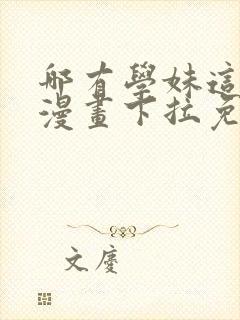 那有學妹這
漫畫下拉免
文慶